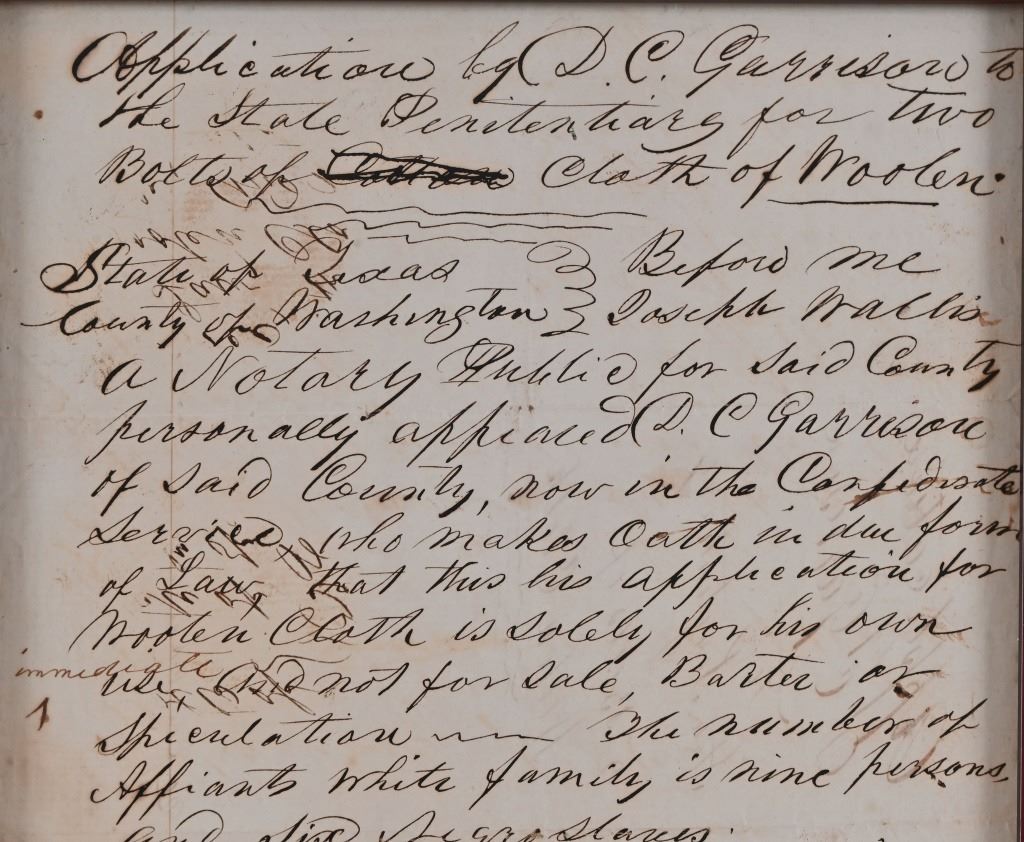 Application by D. C. Garrison to
the State Penitentiary for two
Bolts of Cotton Cloth of Woolen.
State of Texas } Before me
County of Washington } Joseph Wallis
a Notary Public for said County
personally appeared D. C Garrison
of said County, now in the Confederate
Service who makes Oath in due form
of Law, that this his application for
Woolen Cloth is solely for his own
immediate
use, and not for sale, Barter or
1
Speculation —— The number of
Affiants white family is nine persons
and six Negro slaves.